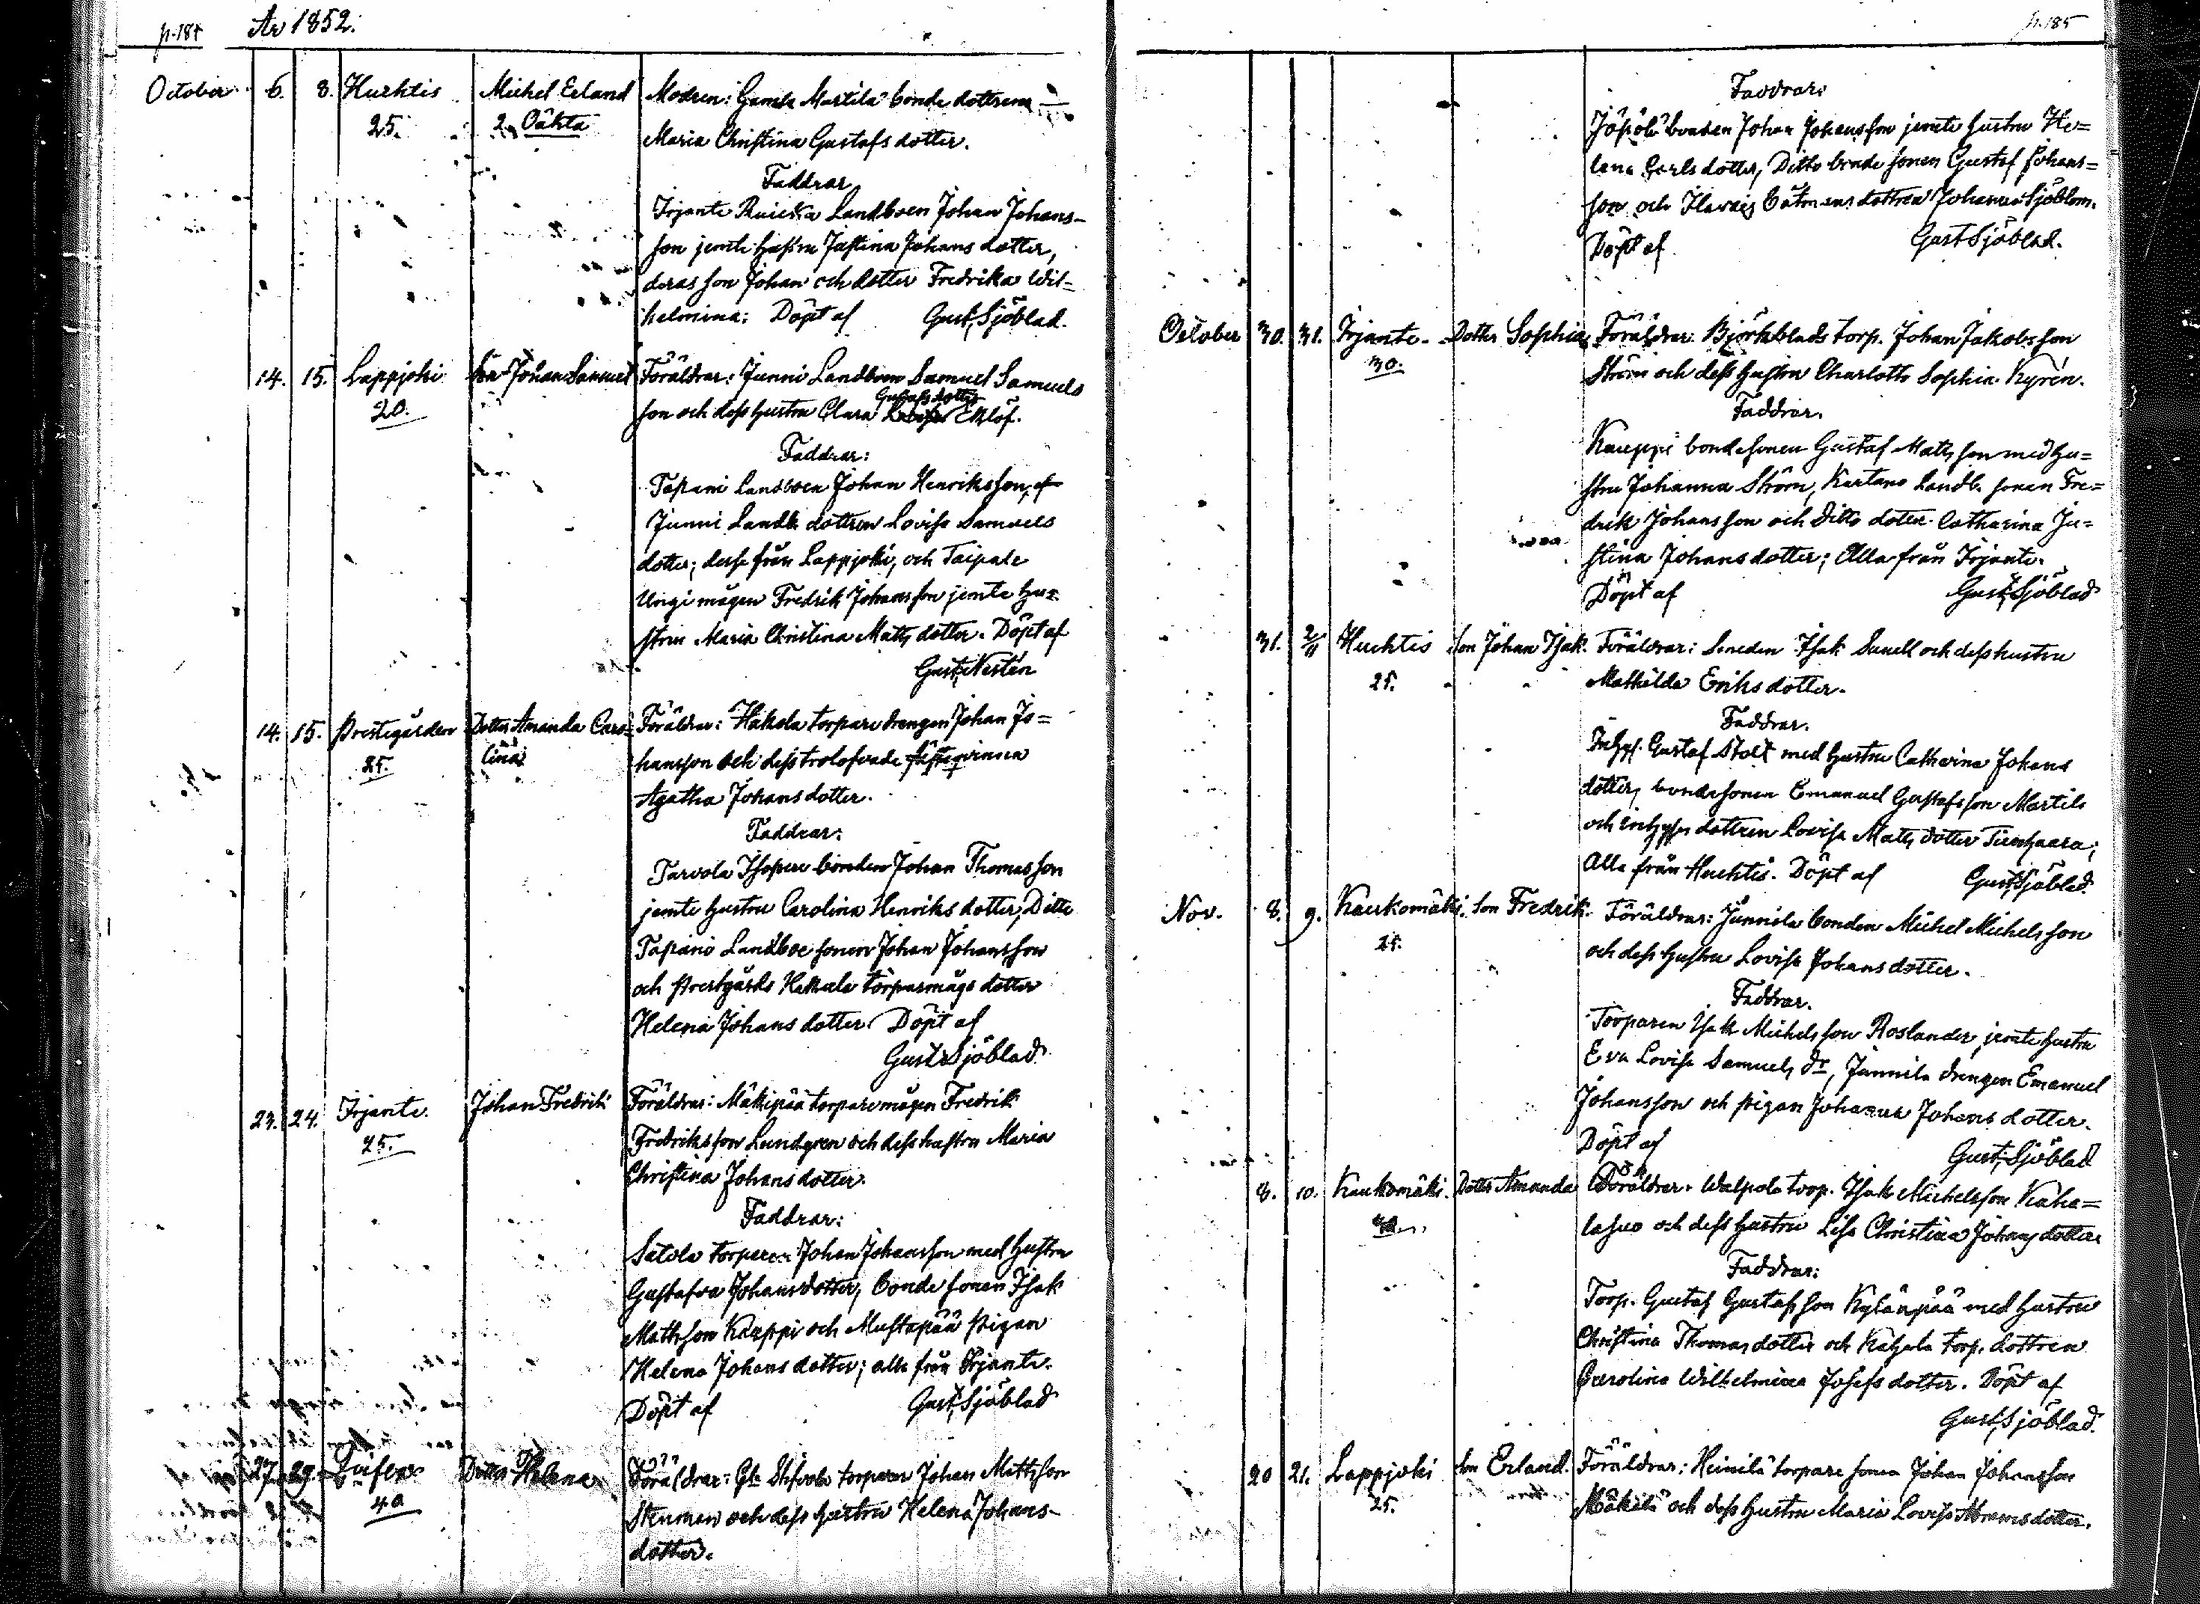 p. 184 År 1852.
October 6. 8. Huhtis Michel Erland Modren: Gamla Martila bonde dottren
25. 2. Oäkta Maria Christina Gustafs dotter.
Faddrar
Irjante Landboen Johan Johans-
son jemte hustru Justina Johans dotter,
deras son Johan och dotter Fredrika Wil=
helmina: Döpt af Gust. Sjöblad.
14. 15. Lappjoki Son Johan Samuel Föräldrar: Junni Landboen Samuel Samuels
20. son och dess hustru Clara Gustafs dotter Eklöf.
Faddrar:
Tapani Landboen Johan Henriksson, och
Junni Landb. dottren Lovisa Samuels
dotter; desse från Lappjoki, och Taipale
Ungi mågen Fredrik Johansson jemte hu=
stru Maria Christina Mats dotter. Döpt af
Gust. Nestén
14. 15. Prestegården Dotter Amanda Caro= Föräldrar: Hakola torpare drengen Johan Jo=
25. lina hansson och dess trolofvade fästeqvinna
Agatha Johans dotter.
Faddrar:
Tarvola bonden Johan Thomasson
jemte hustru Carolina Henriks dotter, Ditto
Tapani Landboe sonen Johan Johansson
och Prestgårds Hakala torparmågs dotter
Helena Johans dotter. Döpt af
Gust. Sjöblad
23. 24. Irjante. Johan Fredrik Föräldrar: Mäkipää torpare mågen Fredrik
25. Fredriksson Lundgren och dess hustru Maria
Christina Johans dotter.
Faddrar:
Satola torparen Johan Johansson med hustru
Gustafva Johans dotter, bonde sonen Isak
Mathson Kauppi och Mustapää pigan
Helena Johans dotter; alla från Irjante.
Döpt af Gust. Sjöblad
27. 29. Dotter Helena Föräldrar: torparen Johan Mattsson
40. och dess hustru Helena Johans-
dotter.
p. 185
Faddrar:
bonden Johan Johansson jemte hustru He=
lena Carls dotter, Ditto bonde sonen Gustaf Johans=
son och dottren Johanna Sjöblom.
Döpt af Gust. Sjöblad.
October 30. 31. Irjante. Dotter Sophia Föräldrar: Björkblads torp. Johan Jakobsson
30. Ström och dess hustru Charlotta Sophia Kyrén.
Faddrar.
Kauppi bondesonen Gustaf Matsson med hu=
stru Johanna Ström, Kartano Landb. sonen Fre=
drik Johansson och Ditto dotter Catharina Ju=
stina Johans dotter; Alla från Irjante.
Döpt af Gust. Sjöblad
31. 2/11 Huhtis Son Johan Isak. Föräldrar: Smeden Isak Sunell och dess hustru
25. Mathilda Eriks dotter.
Faddrar.
Inhys. Gustaf Stolt med hustru Catharina Johans
dotter, bondesonen Emanuel Gustafsson Martila
och inhyses dottren Lovisa Mats dotter
Alla från Huhtis. Döpt af Gust. Sjöblad.
Nov. 8. 9. Kaukomäki. Son Fredrik. Föräldrar: Junnila bonden Michel Michelsson
25. och dess hustru Lovisa Johans dotter.
Faddrar.
Torparen Isak Michelsson Roslander, jemte hustru
Eva Lovisa Samuels dr, Junnila drengen Emanuel
Johansson och pigan Johanna Johans dotter.
Döpt af Gust. Sjöblad
8. 10. Kaukomäki. Dotter Amanda Föräldrar. Walpola torp. Isak Michelsson Kaha=
lasuo och dess hustru Lisa Christina Johans dotter.
Faddrar:
Torp. Gustaf Gustafsson Kylänpää med hustru
Christina Thomas dotter och torp. dottren
Carolina Wilhelmina Josefs dotter. Döpt af
Gust. Sjöblad.
20 21. Lappjoki Son Erland. Föräldrar: Heinilä torpare sonen Johan Johansson
25. Mäkelä och dess hustru Maria Lovisa dotter.